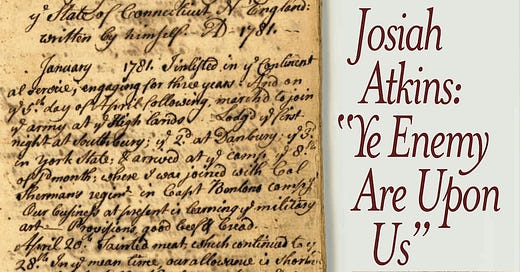 ye State of Connecticut N. England:
written by himself. AD 1781.
January 1781. I inlisted in ye Continent
al Service, engaging for three years. And on
ye 5th day of April following, march'd to join
ye army at ye High lands. Lodg'd ye first
night at Southbury; ye 2d at Danbury; ye 3d
in York State; & arrived at ye camp ye 8th
of sd month; where I was joined with Col
Shermans regimt in Capt Bentons compy
Our business at present is learning ye military
art — Provisions, good beef & bread.
April 20th Tainted meat which continued to ye
28th In ye mean time our allowance is short
Josiah
Atkins:
“Ye Enemy
Are Upon
Us”